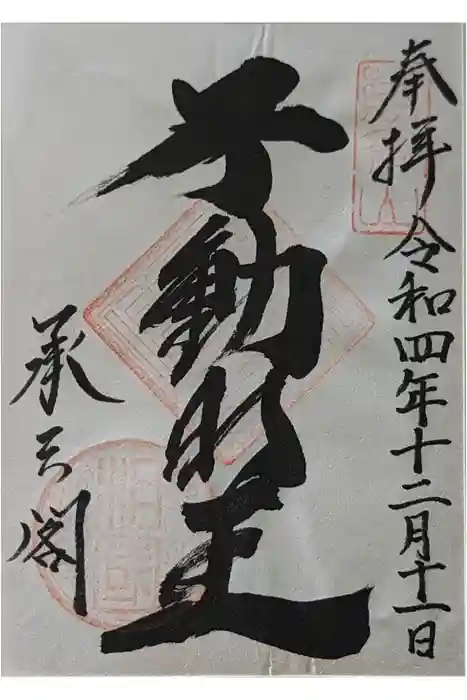 奉拝 令和四年十二月十一日
不動明王
承天閣